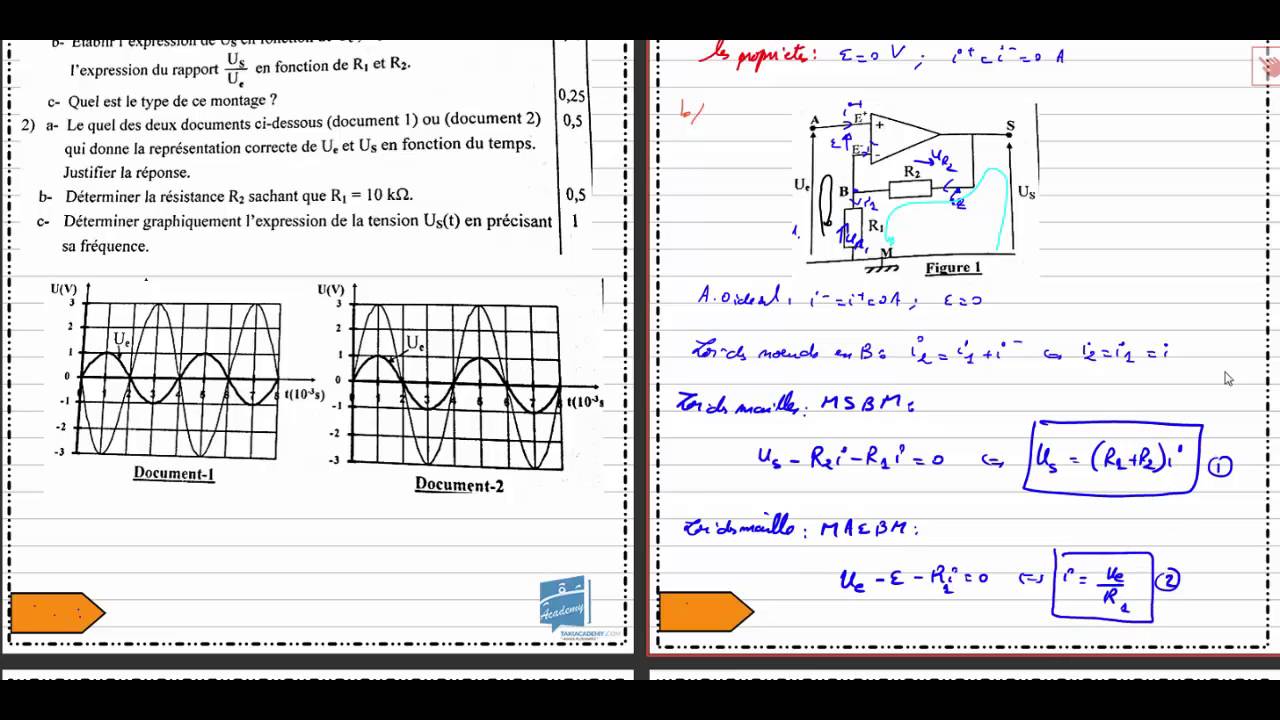 b- Etablir l'expression de Us en fonction de
l'expression du rapport Us/Ue en fonction de R1 et R2.
c- Quel est le type de ce montage ? 0,25
2) a- Le quel des deux documents ci-dessous (document 1) ou (document 2) 0,5
qui donne la représentation correcte de Ue et Us en fonction du temps.
Justifier la réponse.
b- Déterminer la résistance R2 sachant que R1 = 10 kΩ. 0,5
c- Déterminer graphiquement l'expression de la tension Us(t) en précisant 1
sa fréquence.
U(V)
3
2
1
0
-1
-2
-3
Ue
t(10-3s)
Document-1
U(V)
3
2
1
0
-1
-2
-3
Ue
t(10-3s)
Document-2
Academy
TAKIACADEMY.COM
les proprietes : ε=0 V ; i+=i-=0 A
b/
A
i+
E+
+
S
ε
E-
-
UR2
R2
Ue
B
i2
Us
R1
UR1
M
Figure 1
A.O ideal, i-=i+=0A ; ε=0
Loi des noeuds en B : i2=i1+i- ⇔ i2=i1=i
Loi des mailles : MSBM :
Us - R2i - R1i = 0 ⇔ Us = (R1+R2)i ①
Loi des mailles : MAEBM :
Ue - ε - R1i = 0 ⇔ i = Ue/R1 ②